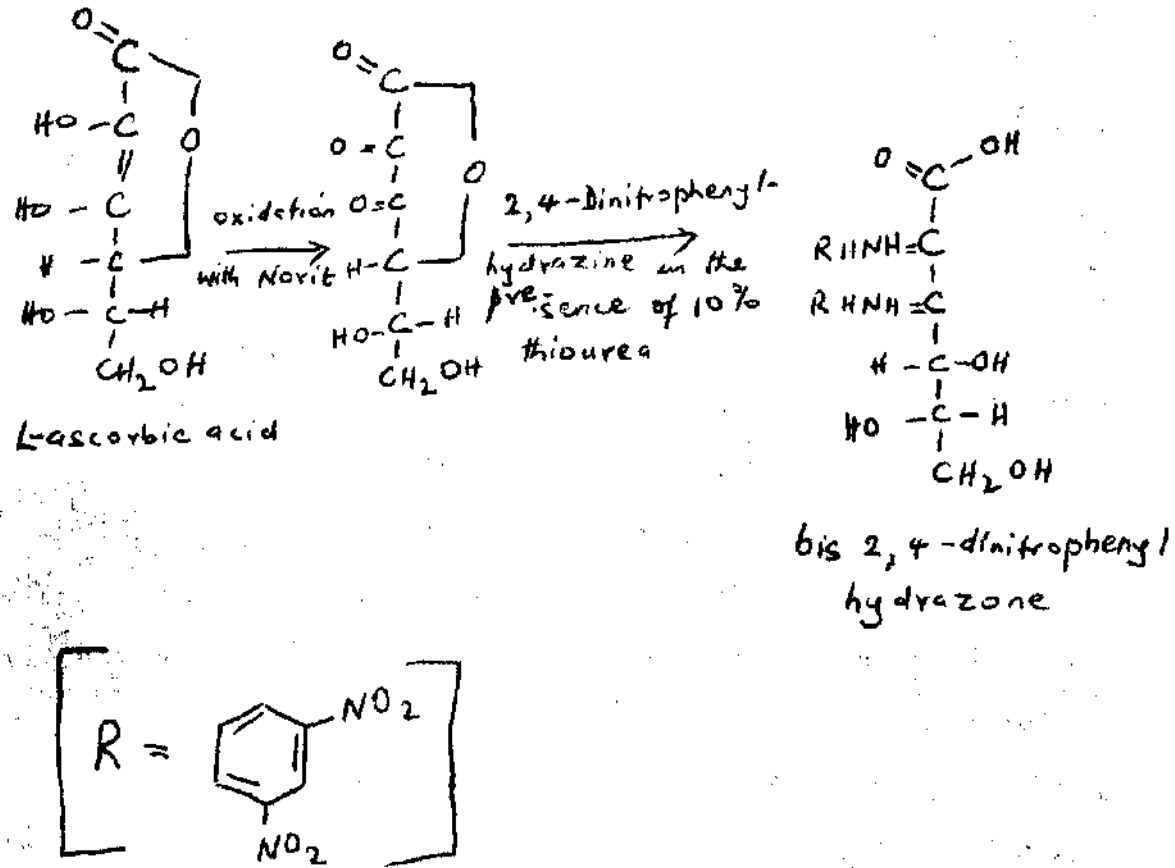 O=C
HO-C
O
HO-C
H-C
HO-C-H
CH2OH
L-ascorbic acid
oxidation
with Norit
O=C
O=C
O
O=C
H-C
HO-C-H
CH2OH
2,4-Dinitrophenyl-
hydrazine in the
pre-sence of 10%
thiourea
O=C-OH
RHNH=C
RHNH=C
H-C-OH
HO-C-H
CH2OH
bis 2,4-dinitrophenyl
hydrazone
R =
NO2
NO2